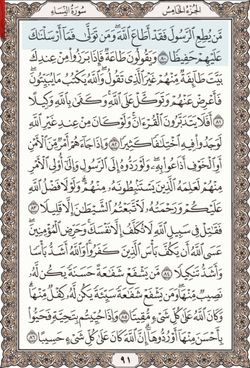 الجزء الخامس سورة النساء
من يطع الرسول فقد أطاع الله ومن تولى فما أرسلناك
عليهم حفيظا ٨٠ ويقولون طاعة فإذا برزوا من عندك
بيت طائفة منهم غير الذى تقول والله يكتب ما يبيتون
فأعرض عنهم وتوكل على الله وكفى بالله وكيلا ٨١
أفلا يتدبرون القرءان ولو كان من عند غير الله
لوجدوا فيه اختلافا كثيرا ٨٢ وإذا جاءهم أمر من الأمن
أو الخوف أذاعوا به ولو ردوه إلى الرسول وإلى أولى الأمر
منهم لعلمه الذين يستنبطونه منهم ولولا فضل الله
عليكم ورحمته لاتبعتم الشيطان إلا قليلا ٨٣
فقاتل فى سبيل الله لا تكلف إلا نفسك وحرض المؤمنين
عسى الله أن يكف بأس الذين كفروا والله أشد بأسا
وأشد تنكيلا ٨٤ من يشفع شفاعة حسنة يكن له
نصيب منها ومن يشفع شفاعة سيئة يكن له كفل منها
وكان الله على كل شىء مقيتا ٨٥ وإذا حييتم بتحية فحيوا
بأحسن منها أو ردوها إن الله كان على كل شىء حسيبا ٨٦
٩١